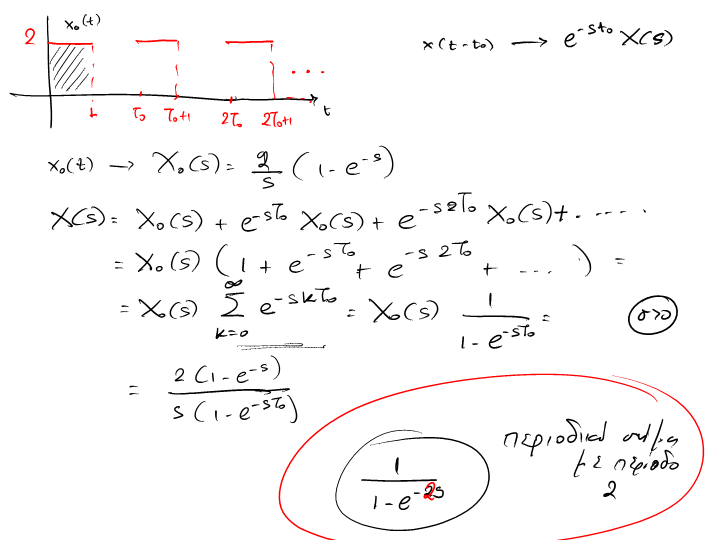 x₀(t)
2
1 T₀ T₀+1 2T₀ 2T₀+1 t
...
x(t-t₀) → e^{-st₀} X(s)
x₀(t) → X₀(s) = 2/s (1-e^{-s})
X(s) = X₀(s) + e^{-sT₀} X₀(s) + e^{-s2T₀} X₀(s) + ......
= X₀(s) (1 + e^{-sT₀} + e^{-s2T₀} + ...) =
= X₀(s) Σ_{k=0}^{∞} e^{-skT₀} = X₀(s) 1/(1-e^{-sT₀}) = σ>0
= 2(1-e^{-s}) / s(1-e^{-sT₀})
1/(1-e^{-2s})
περιοδικά σήμα
με περίοδο
2